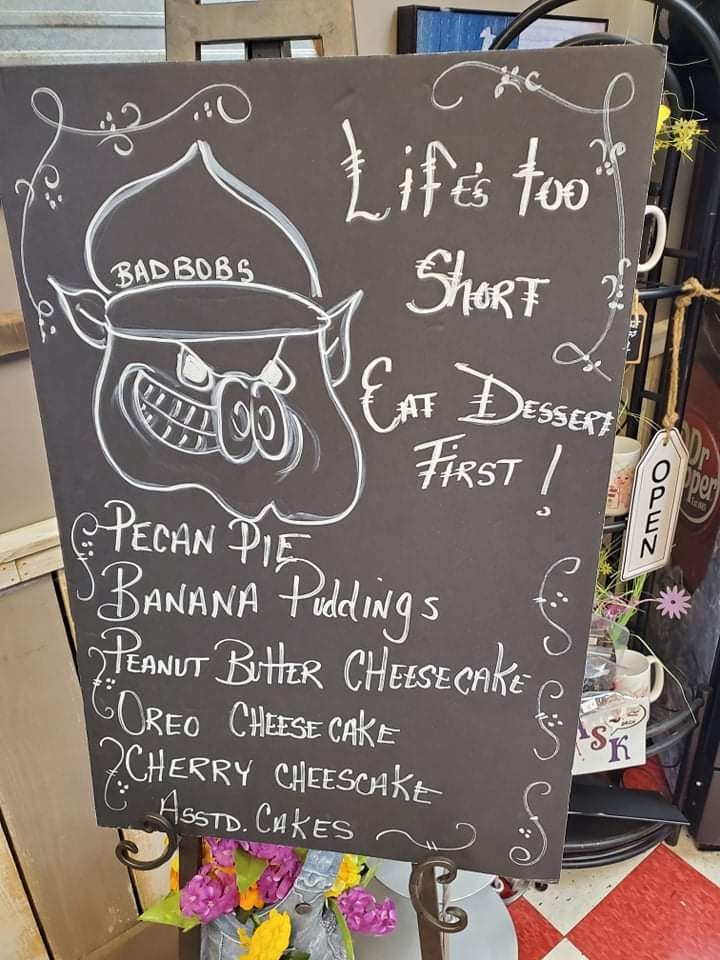 BADBOBS
Life's too
Short
Eat Dessert
First!
Pecan Pie
Banana Puddings
Peanut Butter Cheesecake
Oreo Cheese cake
Cherry cheescake
Asstd. Cakes
OPEN
Dr
pper